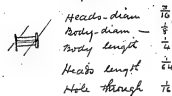 Heads-diam 3/16
Body-diam - 1/8
Body length 1/4
Heads length 1/64
Hole through 1/16